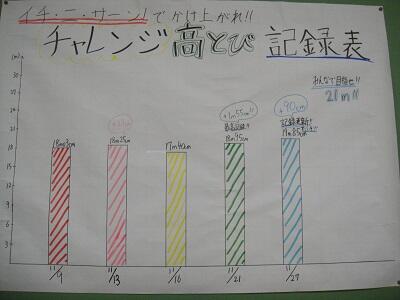 イチ・ニ・サーン!でかけ上がれ!!
チャレンジ高とび記録表
みんなで目指せ!!
21m!!
(m)
21
18
15
12
9
6
3
18m25cm
17m40cm
+1m55cm!!
最高記録!!
18m95cm
+90cm
記録更新!
19m85cm
11/9
11/13
11/16
11/21
11/27